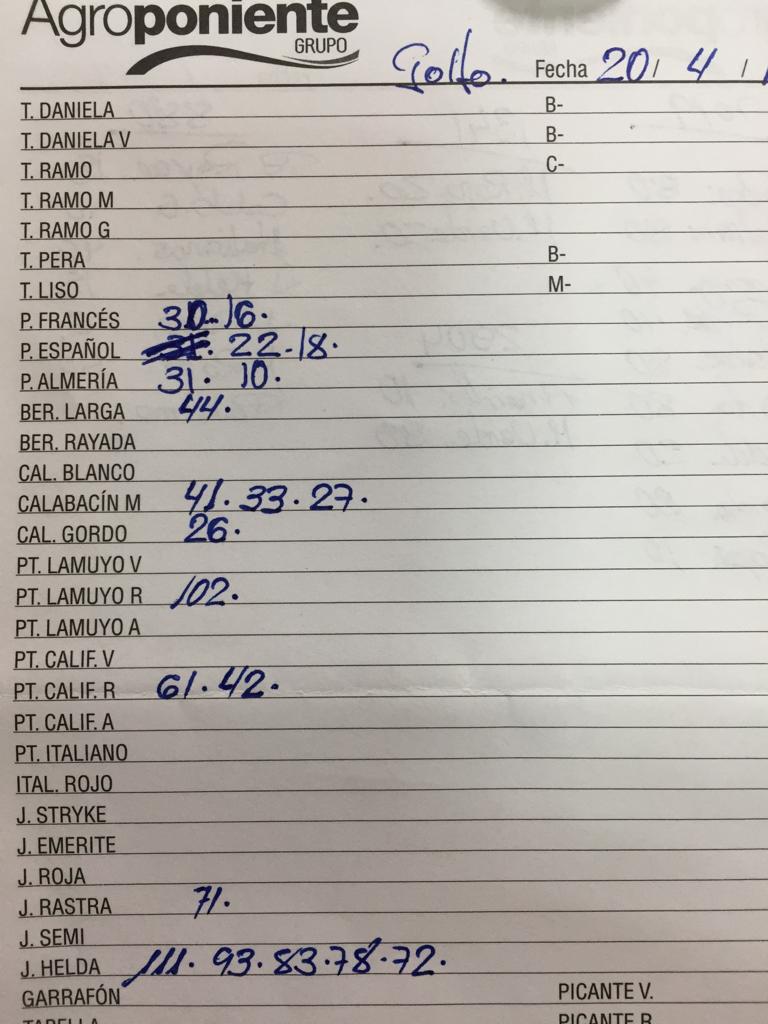 Agroponiente
GRUPO
Golfo. Fecha 20/ 4 /
T. DANIELA B-
T. DANIELA V B-
T. RAMO C-
T. RAMO M
T. RAMO G
T. PERA B-
T. LISO M-
P. FRANCÉS 30-16.
P. ESPAÑOL 22-18.
P. ALMERÍA 31. 10.
BER. LARGA 44.
BER. RAYADA
CAL. BLANCO
CALABACÍN M 41. 33. 27.
CAL. GORDO 26.
PT. LAMUYO V
PT. LAMUYO R 102.
PT. LAMUYO A
PT. CALIF. V
PT. CALIF. R 61. 42.
PT. CALIF. A
PT. ITALIANO
ITAL. ROJO
J. STRYKE
J. EMERITE
J. ROJA
J. RASTRA 71.
J. SEMI
J. HELDA 111. 93. 83. 78. 72.
GARRAFÓN PICANTE V.
PICANTE R